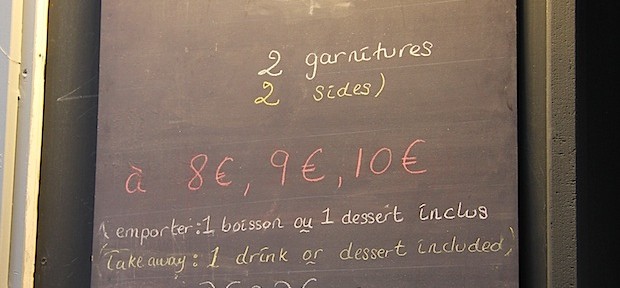 2 garnitures
2 sides)
à 8€, 9€, 10€
emporter: 1 boisson ou 1 dessert inclus
Takeaway: 1 drink or dessert included)